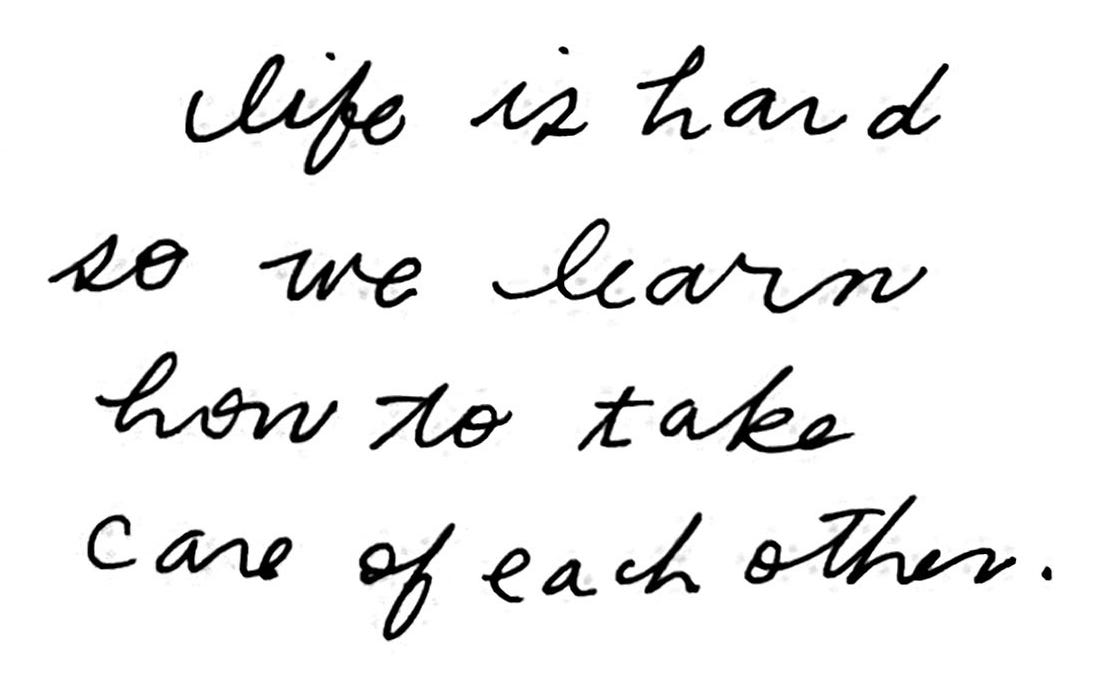 life is hard
so we learn
how to take
care of each other.